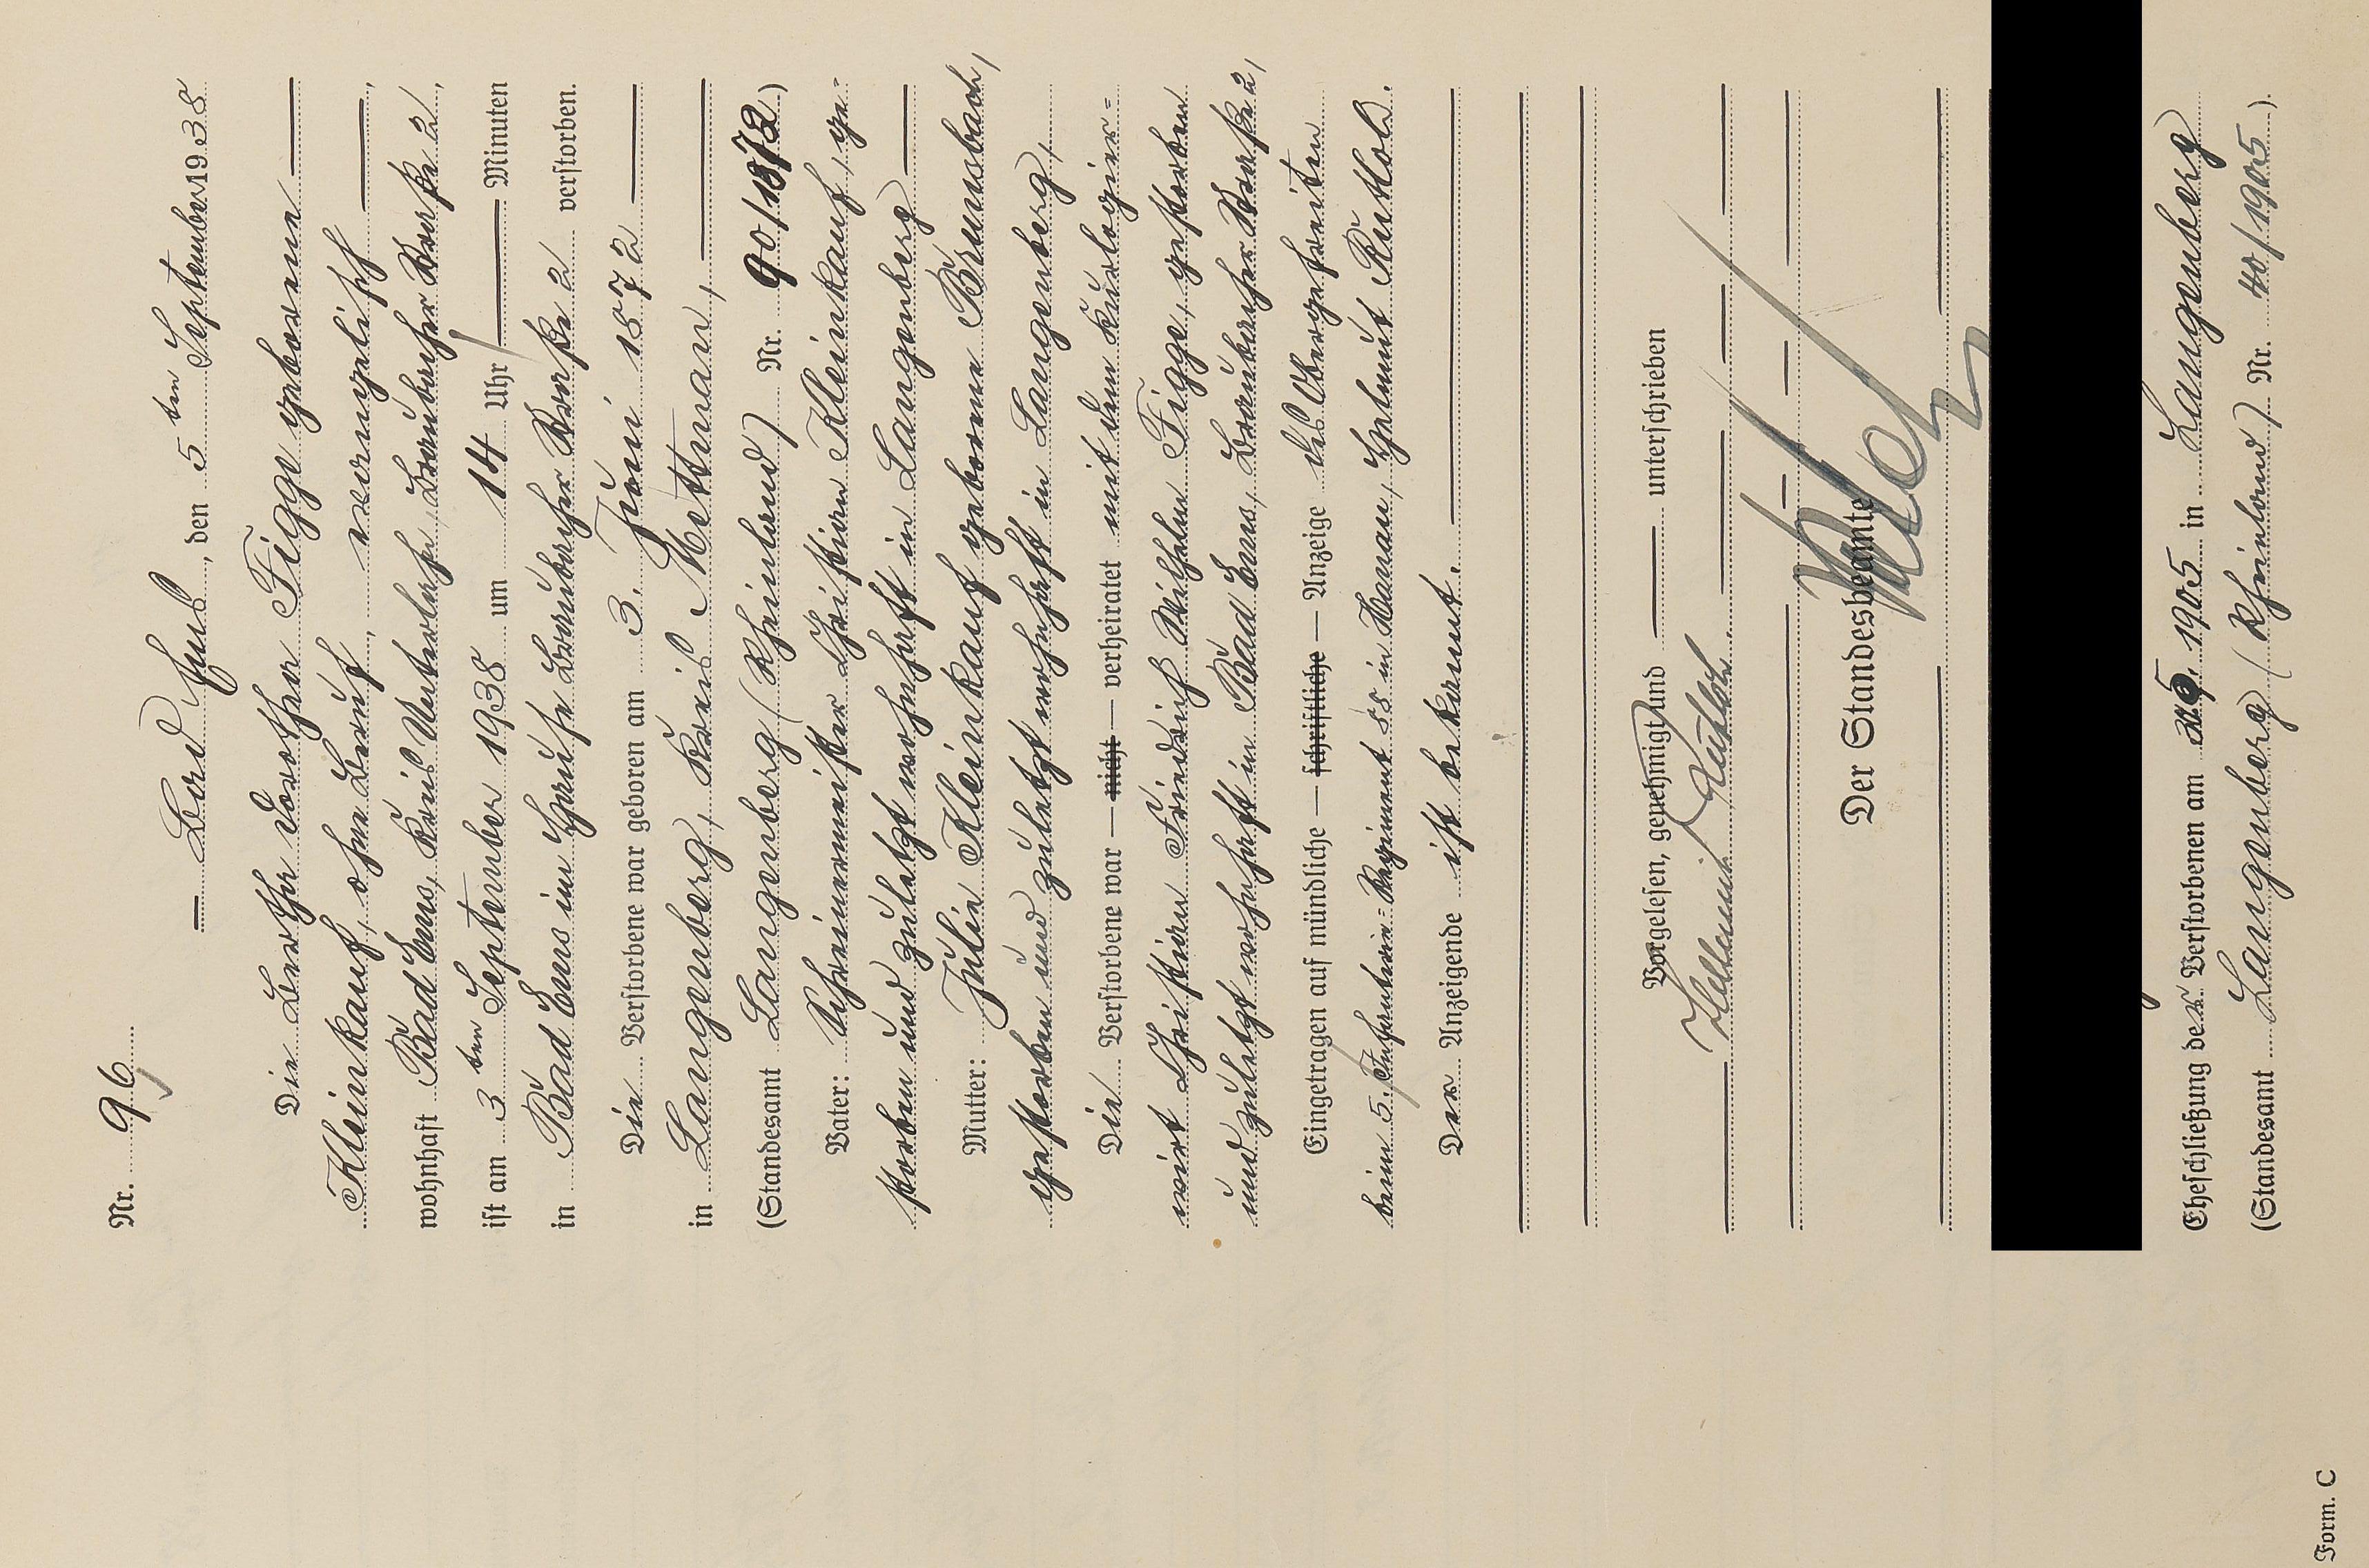 Nr. 96
Bad Ems, den 5ten September 1938
Die Berthe Dorothea Figge geborene
Kleinkauf, ohne Beruf, evangelisch,
wohnhaft Bad Ems, Kreis Unterlahn, Braubacher Straße 2,
ist am 3ten September 1938 um 14 Uhr Minuten
in Bad Ems im Hause Braubacher Straße 2 verstorben.
Die Verstorbene war geboren am 3. Juni 1872
in Langenberg, Kreis Mettman,
(Standesamt Langenberg (Rheinland) Nr. 90/1872)
Vater: Schreinermeister Christian Kleinkauf, ge-
storben und zuletzt wohnhaft in Langenberg
Mutter: Julie Kleinkauf geborene Brunsbach,
gestorben und zuletzt wohnhaft in Langenberg,
Die Verstorbene war — nicht — verheiratet mit dem Kurlogier-
wirt Christian Friedrich Wilhelm Figge, gestorben
und zuletzt wohnhaft in Bad Ems, Braubacher Straße 2,
Eingetragen auf mündliche — schriftliche — Anzeige des Obergefreiten
beim 5. Infanterie-Regiment 88 in Hanau, Helmut Kutlob.
Der Anzeigende ist bekannt.
Vorgelesen, genehmigt und unterschrieben
Hellmuth
Der Standesbeamte
Eheschließung der Verstorbenen am 1905 in Langenberg
(Standesamt Langenberg (Rheinland) Nr. 40/1905).
Form. C